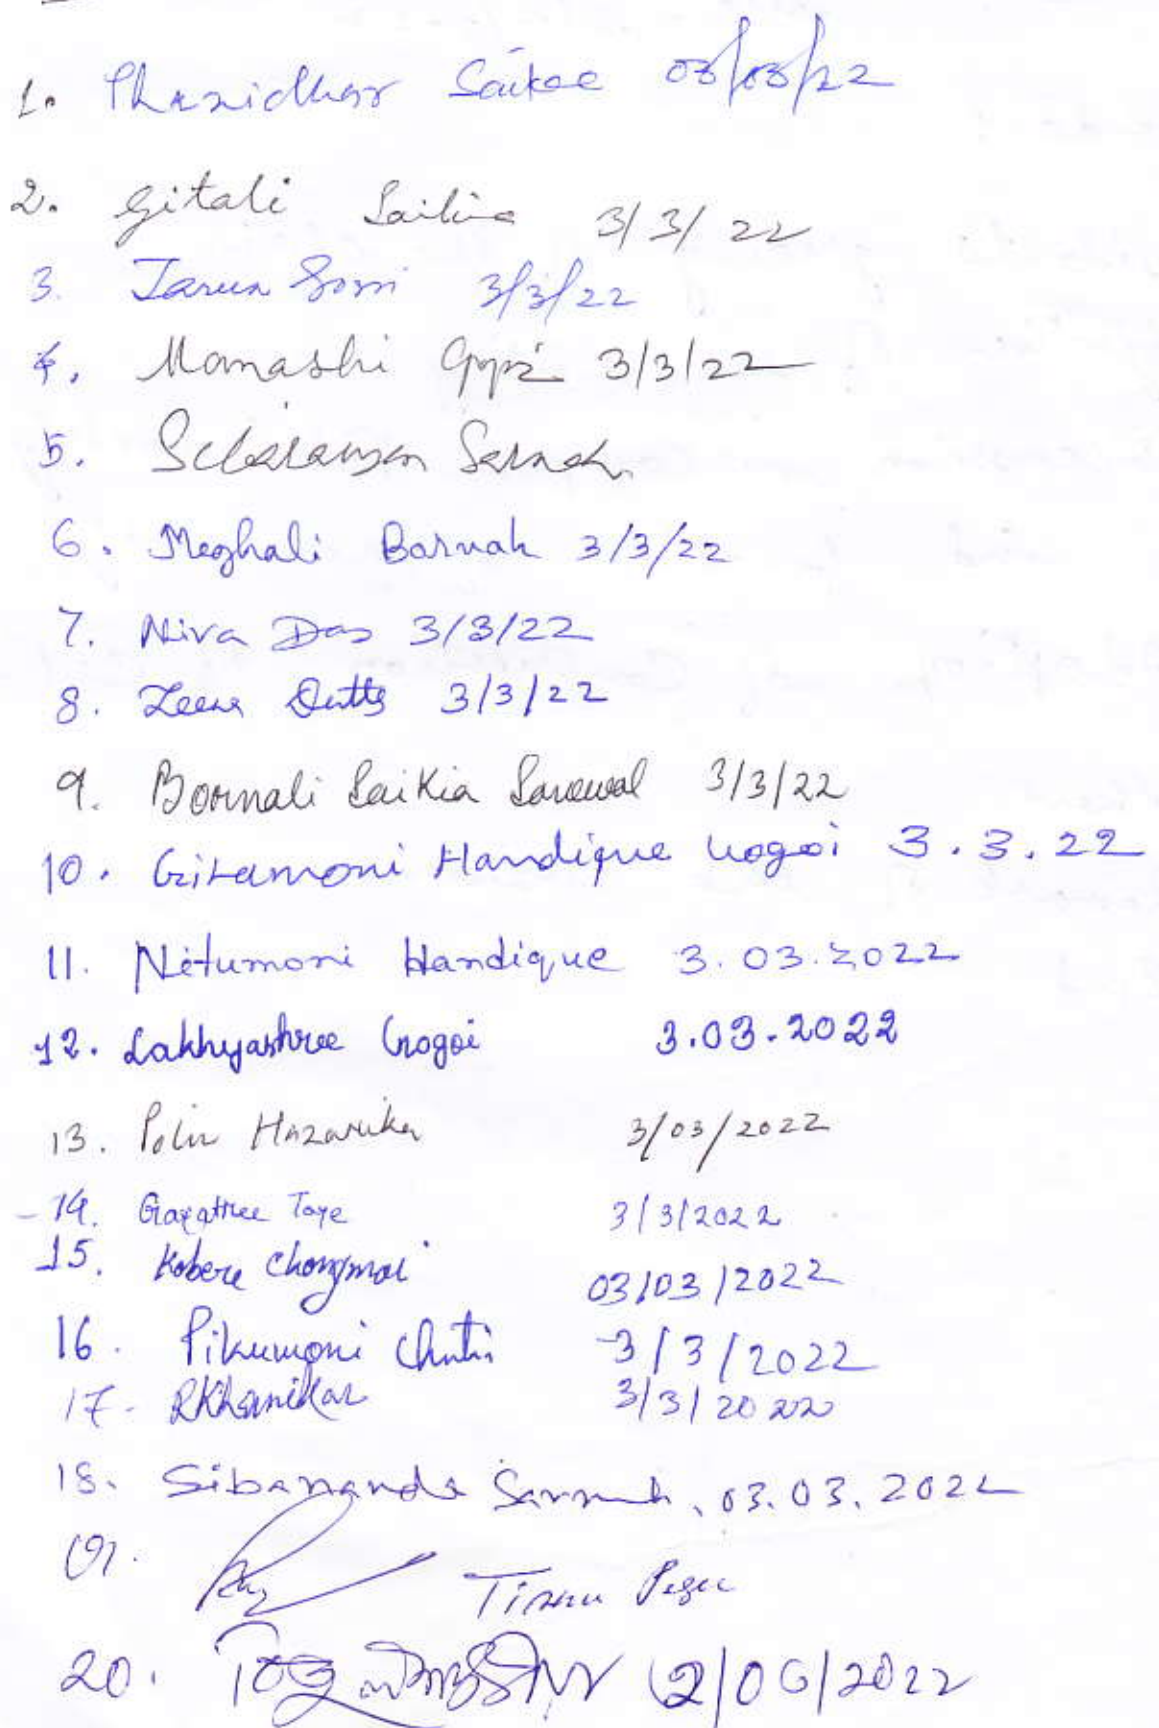 1. Phanidhar Saikee 03/03/22
2. Gitali Saikia 3/3/22
3. Tarun 3/3/22
4. Manashi 3/3/22
5.
6. Meghali Baruah 3/3/22
7. Niva Das 3/3/22
8. Leena Dutta 3/3/22
9. Bornali Saikia Sonowal 3/3/22
10. Gitamoni Handique Gogoi 3.3.22
11. Nitumoni Handique 3.03.2022
12. Lakhyashree Gogoi 3.03.2022
13. Hazarika 3/03/2022
14. Gayatree Taye 3/3/2022
15. Kobere Chongmai 03/03/2022
16. Pikumoni Chutia 3/3/2022
17. RKhanikar 3/3/2022
18. Sibananda Sarmah, 03.03.2022
19. Pegu
20. 2/06/2022